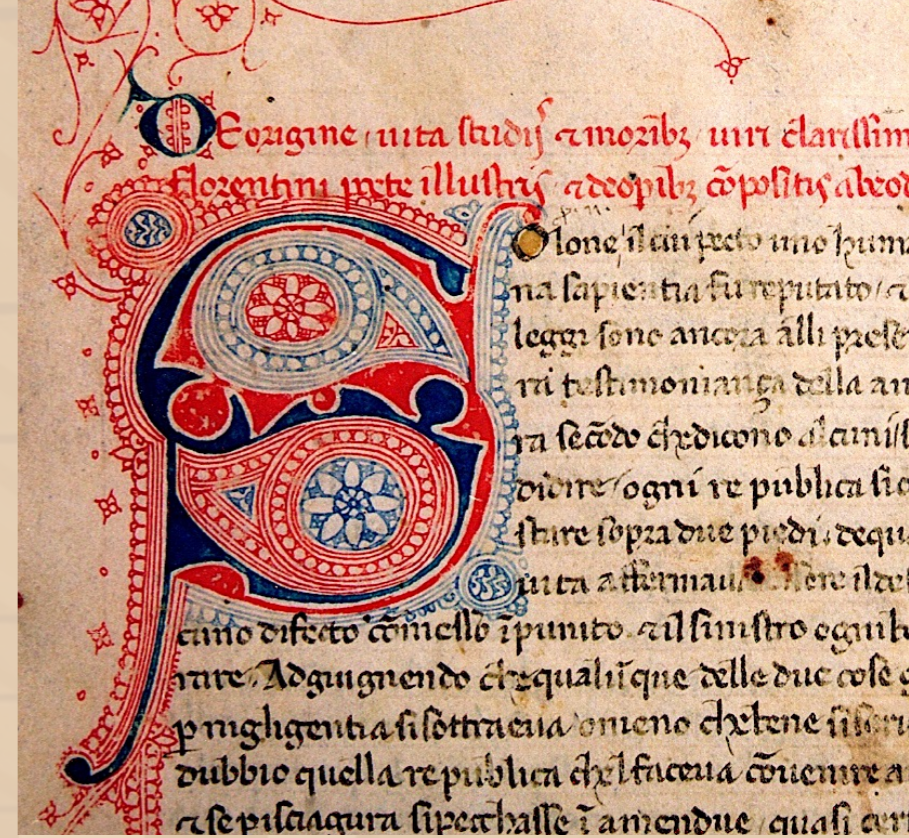 DE origine, uita studij ⁊ moribꝫ uiri clarissim
florentini poete illustris ⁊ de opibꝫ cōpositis a beo
Solone il cui pecto uno huma
na sapientia fu reputato ⁊
leggi sono ancora alli prese
ti testimonianza della an
ra secōdo chedicono alcuni
didire ogni republica si
stare sopra due piedi dequ
uita affermaua essere il de
cuno difecto cōmesso īpunito ⁊ il sinistro ogni b
Adguignendo che qualūque delle due cose
ꝑ nigligentia si sottraeua omeno che bene
dubbio quella republica che l faceua cōuenire a
⁊ se p isciagura si peccasse ī amendue quasi